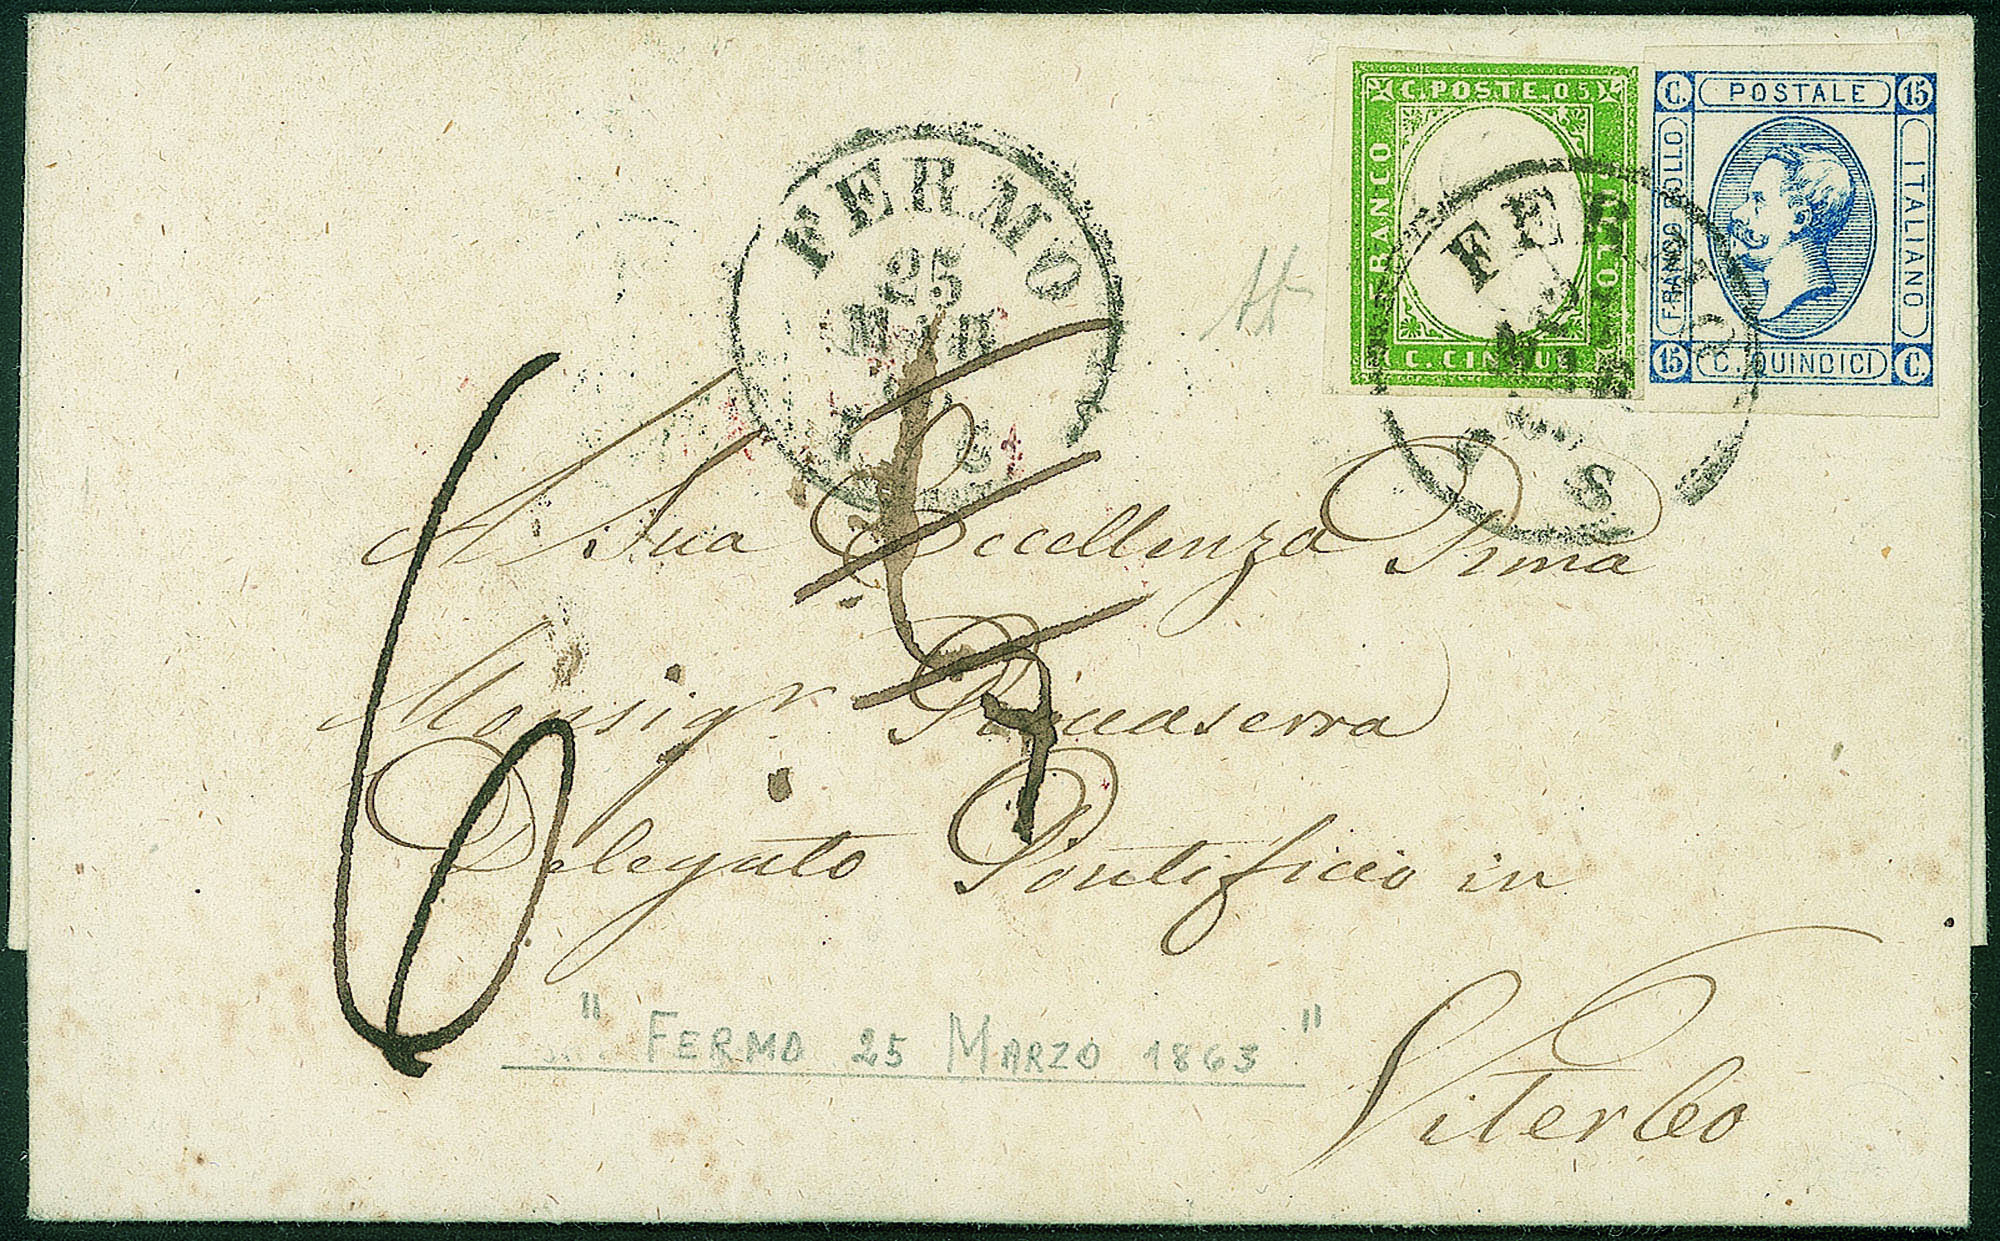 C. POSTE. 05
FRANCO
BOLLO
C. CINQUE
C. POSTALE 15
FRANCO BOLLO
ITALIANO
15 C. QUINDICI C.
FERMO
25
MAR
63
FERMO
S
A Sua Eccellenza Rma
Monsigr
Delegato Pontificio in
Viterbo
6
" FERMO 25 MARZO 1863 "